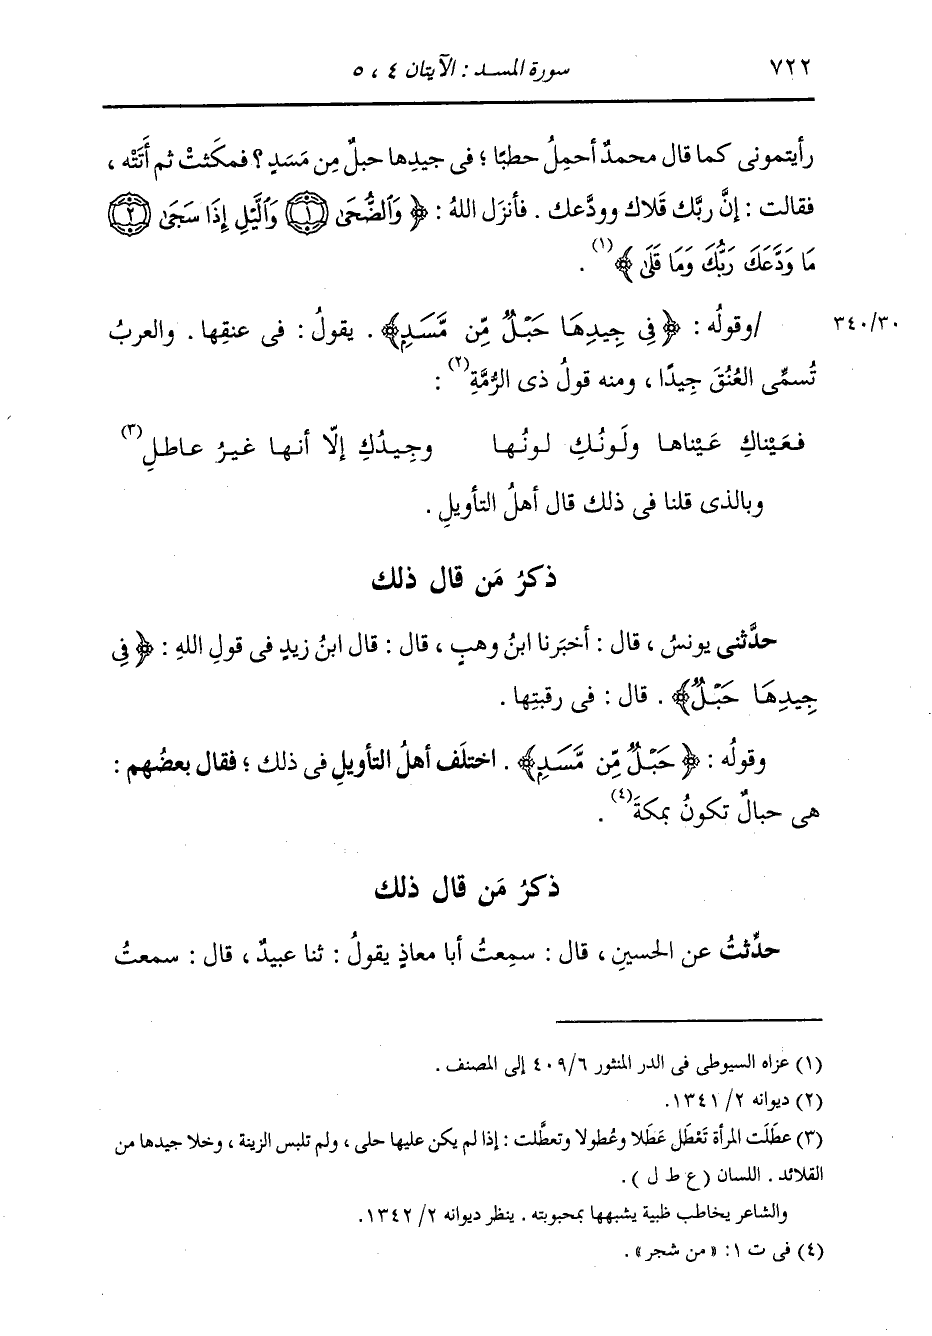 ٧٢٢
سورة المسد : الآيتان ٤ ، ٥
رأيتمونى كما قال محمدٌ أحمِلُ حطبًا ؛ فى جيدِها حبلٌ مِن مَسَدٍ ؟ فمكَثتْ ثم أَتَتْه ،
فقالت : إنَّ ربَّك قَلاك وودَّعك . فأنزَل اللهُ : ﴿ وَٱلضُّحَىٰ ۝١ وَٱلَّيْلِ إِذَا سَجَىٰ ۝٢
مَا وَدَّعَكَ رَبُّكَ وَمَا قَلَىٰ ﴾(١) .
٣٤٠/٣٠
/وقولُه : ﴿ فِى جِيدِهَا حَبْلٌ مِّن مَّسَدٍ﴾ . يقولُ : فى عنقِها . والعربُ
تُسمِّى العُنُقَ جِيدًا ، ومنه قولُ ذى الرُّمَّةِ(٢) :
فعَيْناكِ عَيْناها ولَونُكِ لونُها وجِيدُكِ إلّا أنها غيرُ عاطلِ(٣)
وبالذى قلنا فى ذلك قال أهلُ التأويلِ .
ذكرُ مَن قال ذلك
حدَّثنى يونسُ ، قال : أخبَرنا ابنُ وهبٍ ، قال : قال ابنُ زيدٍ فى قولِ اللهِ : ﴿ فِى
جِيدِهَا حَبْلٌ﴾ . قال : فى رقبتِها .
وقولُه : ﴿ حَبْلٌ مِّن مَّسَدٍ﴾ . اختلَف أهلُ التأويلِ فى ذلك ؛ فقال بعضُهم :
هى حبالٌ تكونُ بمكةَ(٤) .
ذكرُ مَن قال ذلك
حدِّثتُ عن الحسينِ ، قال : سمِعتُ أبا معاذٍ يقولُ : ثنا عبيدٌ ، قال : سمعتُ
(١) عزاه السيوطى فى الدر المنثور ٤٠٩/٦ إلى المصنف .
(٢) ديوانه ٢/ ١٣٤١.
(٣) عطَلَت المرأة تَعْطَل عَطَلا وعُطولا وتعطَّلت : إذا لم يكن عليها حلى ، ولم تلبس الزينة ، وخلا جيدها من
القلائد . اللسان ( ع ط ل ) .
والشاعر يخاطب ظبية يشبهها بمحبوبته . ينظر ديوانه ٢/ ١٣٤٢.
(٤) فى ت ١: «من شجر» .